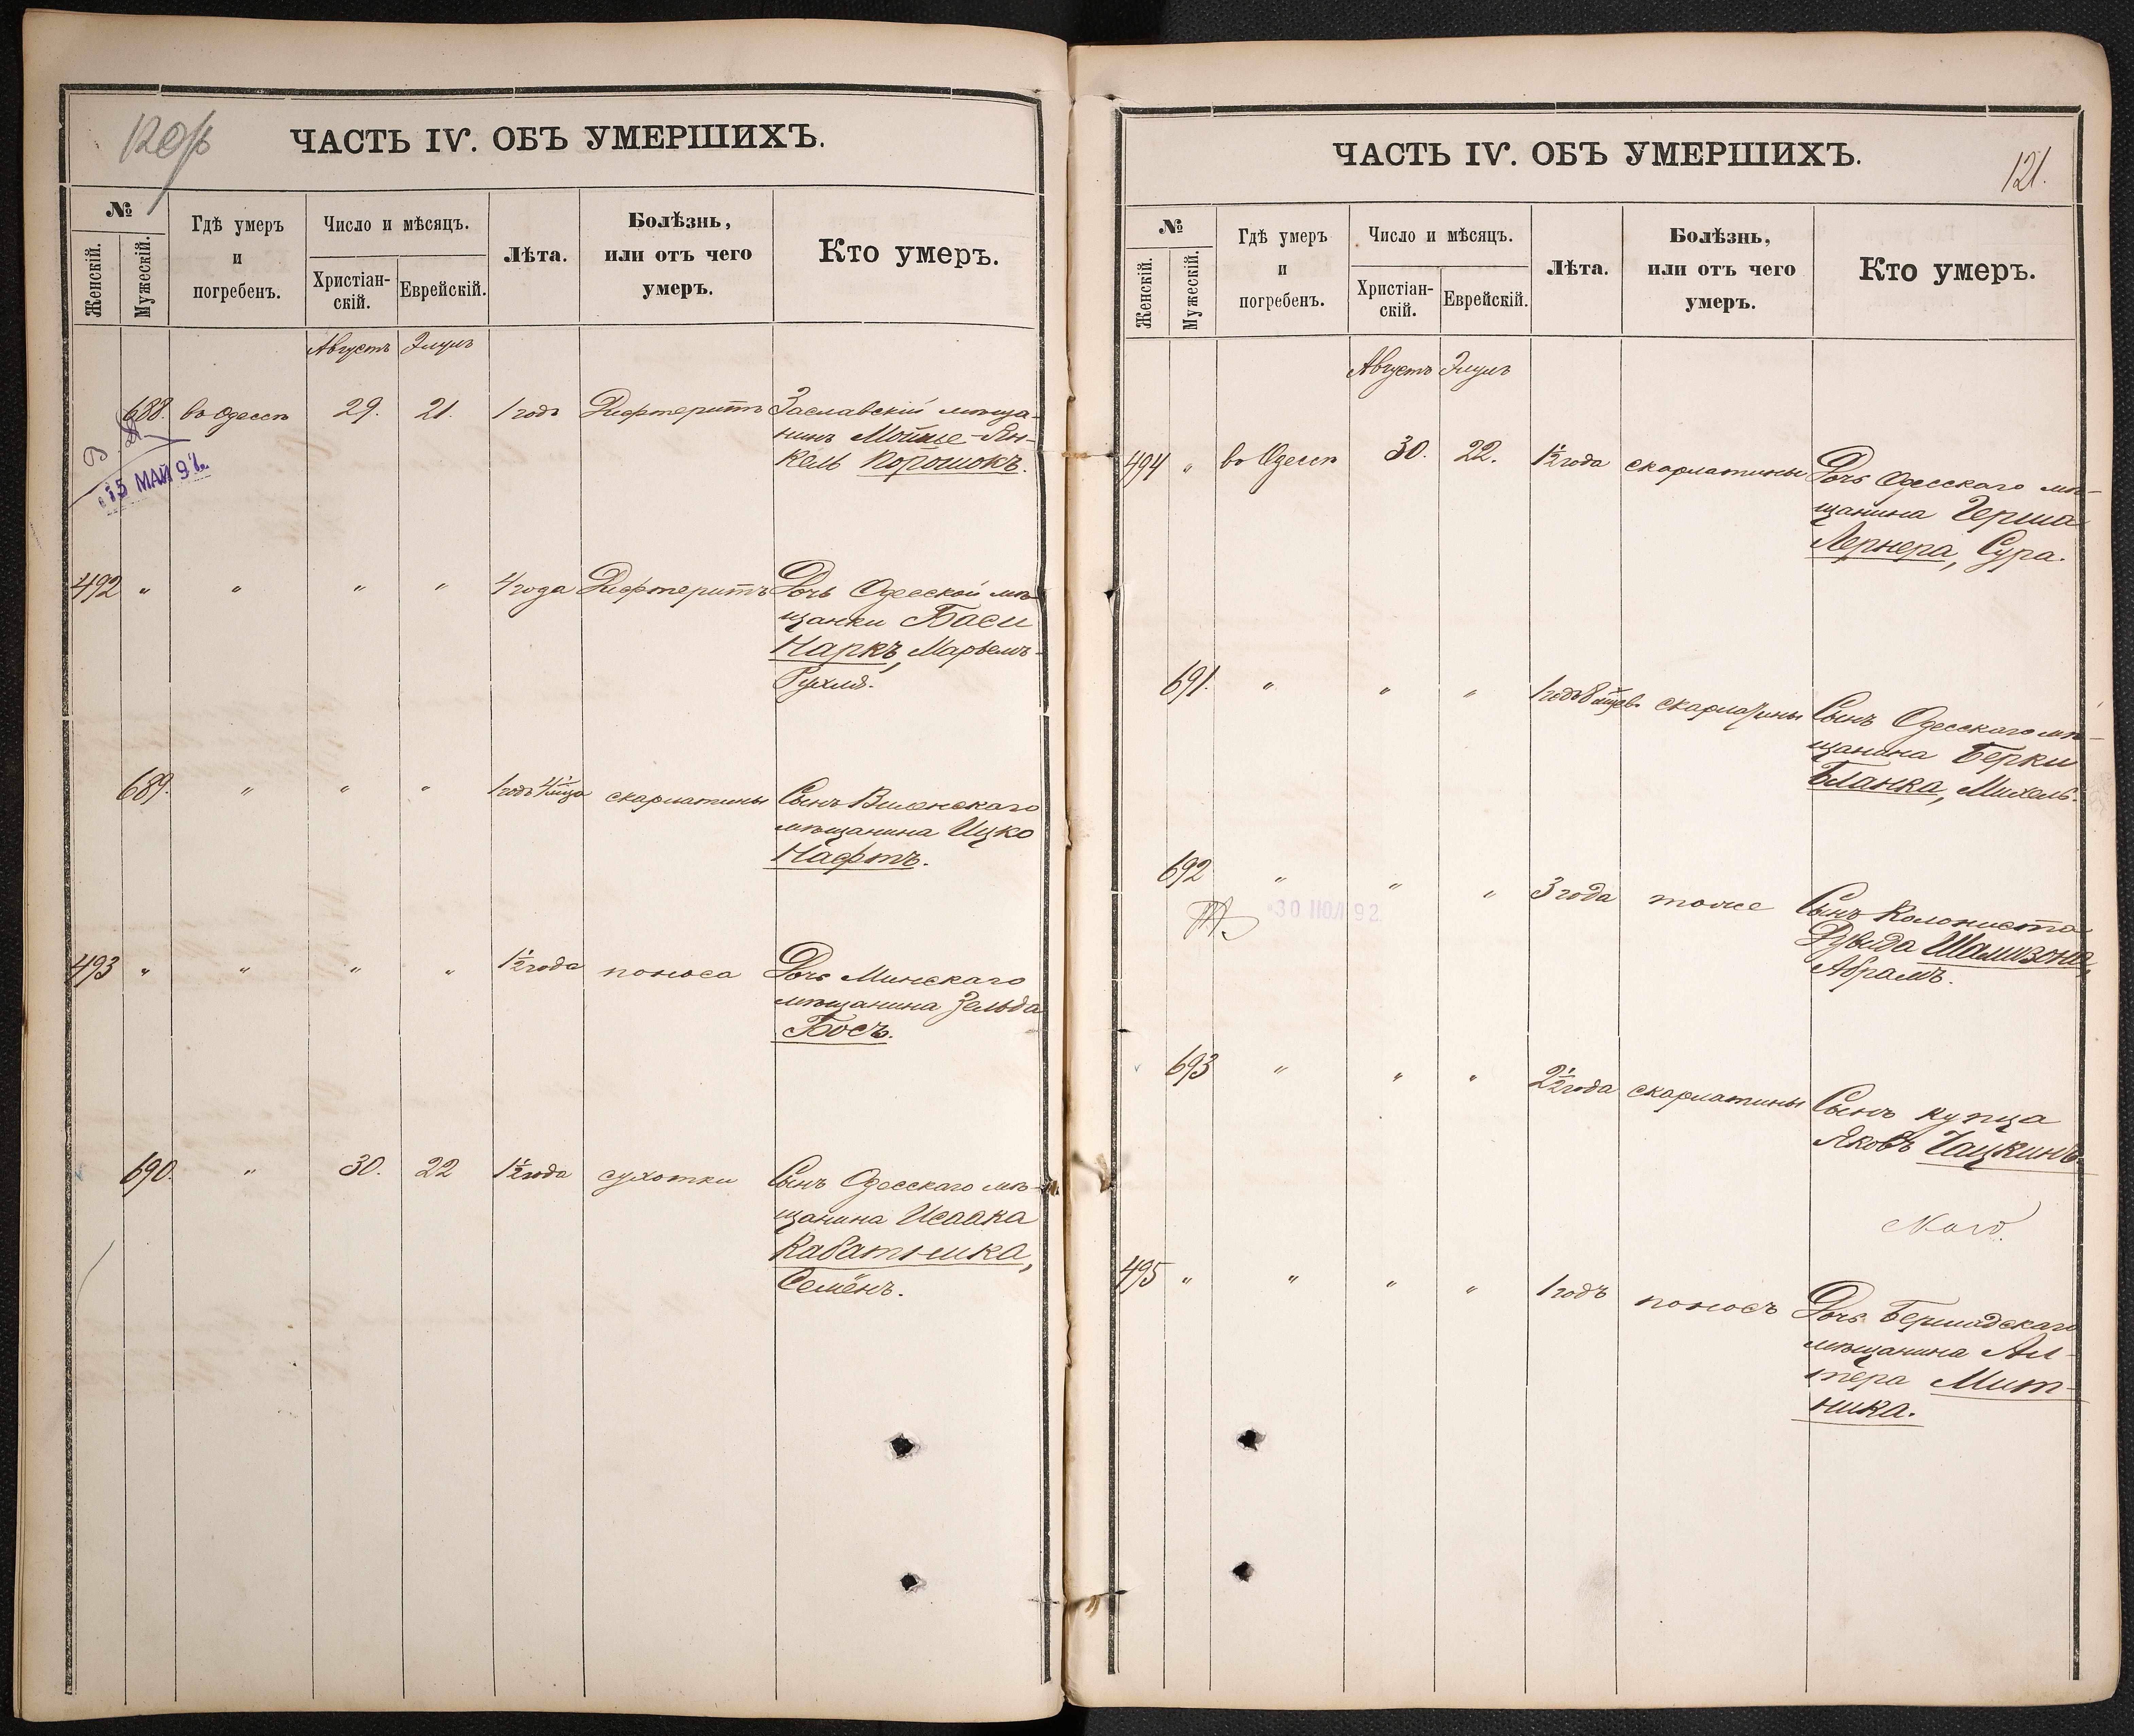 120об
ЧАСТЬ IV. ОБЪ УМЕРШИХЪ.
№
Женскій.
Мужескій.
Гдѣ умеръ
и
погребенъ.
Число и мѣсяцъ.
Христіан-
скій.
Еврейскій.
Лѣта.
Болѣзнь,
или отъ чего
умеръ.
Кто умеръ.
Августъ Элулъ
688. въ Одессѣ 29. 21. 1 годъ Дифтеритъ Заславскій мѣща-
нинъ Мойше-Ян-
кель Порошокъ.
15 МАЙ 9
492 " " " " 4 года Дифтеритъ Дочь Одесской мѣ-
щанки Баси
Наркъ, Марьемъ-
Рухля.
689. " " " 1 годъ 4 м-ца скарлатины Сынъ Виленскаго
мѣщанина Ицко
Нафтъ.
493 " " " " 1½ года поноса Дочь Минскаго
мѣщанина Зельда
Босъ.
690. " 30. 22 1½ года сухотки Сынъ Одесскаго мѣ-
щанина Исаака
Кабатника,
Семёнъ.
ЧАСТЬ IV. ОБЪ УМЕРШИХЪ.
121.
№
Женскій.
Мужескій.
Гдѣ умеръ
и
погребенъ.
Число и мѣсяцъ.
Христіан-
скій.
Еврейскій.
Лѣта.
Болѣзнь,
или отъ чего
умеръ.
Кто умеръ.
Августъ Элулъ
494 " въ Одессѣ 30. 22. 1½ года скарлатины Дочь Одесскаго мѣ-
щанина Герша
Лернера, Сура.
691. " " " 1 годъ 8 м-цев. скарлатины Сынъ Одесскаго мѣ-
щанина Берки
Бланка, Михель.
692 " " " 3 года тоже Сынъ Колониста
Дувида Шамизона,
Абрамъ.
30 ІЮЛ 92
693 " " " 2½ года скарлатины Сынъ купца
Яковъ Гацкинъ.
495 " " " " 1 годъ поносъ Дочь Бершадскаго
мѣщанина Ал-
тера Мит-
ника.